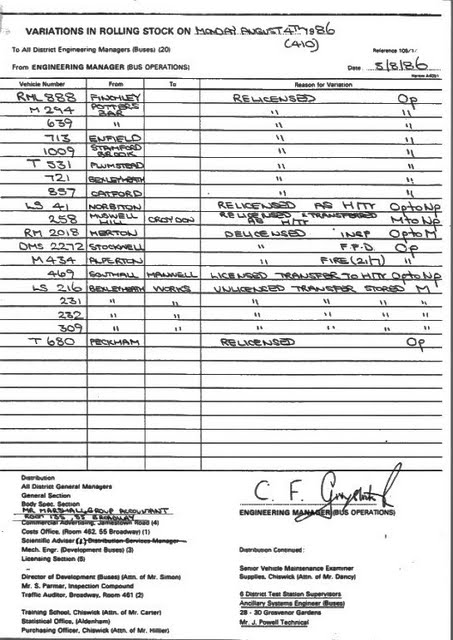 VARIATIONS IN ROLLING STOCK ON MONDAY AUGUST 4TH 1986
(410)
To All District Engineering Managers (Buses) (20)
Reference 105/1/
From ENGINEERING MANAGER (BUS OPERATIONS)
Date 5/8/86
Vehicle Number From To Reason for Variation
RML 888 FINCHLEY RELICENSED Op
M 294 POTTERS BAR " "
639 " " "
713 ENFIELD " "
1009 STAMFORD BROOK " "
T 531 PLUMSTEAD " "
721 BEXLEYHEATH " "
857 CATFORD " "
LS 41 NORBITON RELICENSED AS HTTY Op to Np
258 MUSWELL HILL CROYDON RELICENSED & TRANSFERRED AS HTTY M to Np
RM 2018 MERTON DELICENSED INSP Op to M
DMS 2272 STOCKWELL " F.F.D. Op
M 434 ALPERTON " FIRE (21/7) "
469 SOUTHALL HANWELL LICENSED TRANSFER TO HTTY Op to Np
LS 216 BEXLEYHEATH WORKS UNLICENSED TRANSFER STORED M
231 " " " " " "
232 " " " " " "
309 " " " " " "
T 680 PECKHAM RELICENSED Op
Distribution
All District General Managers
General Section
Body Spec. Section
MR MARSHALL GROUP ACCOUNTANT
ROOM 135, 55 BROADWAY
Commercial Advertising, Jamestown Road (4)
Costs Office, (Room 462, 55 Broadway) (1)
Scientific Adviser (1) Distribution Services Manager
Mech. Engr. (Development Buses) (3)
Licensing Section (5)
Director of Development (Buses) (Attn. of Mr. Simon)
Mr. S. Parmar, Inspection Compound
Traffic Auditor, Broadway, Room 461 (2)
Training School, Chiswick (Attn. of Mr. Carter)
Statistical Office, (Aldenham)
Purchasing Officer, Chiswick (Attn. of Mr. Hillier)
C. F.
ENGINEERING MANAGER (BUS OPERATIONS)
Distribution Continued:
Senior Vehicle Maintenance Examiner
Supplies, Chiswick (Attn. of Mr. Dancy)
6 District Test Station Supervisors
Ancillary Systems Engineer (Buses)
28 - 30 Grosvenor Gardens
Mr. J. Powell Technical